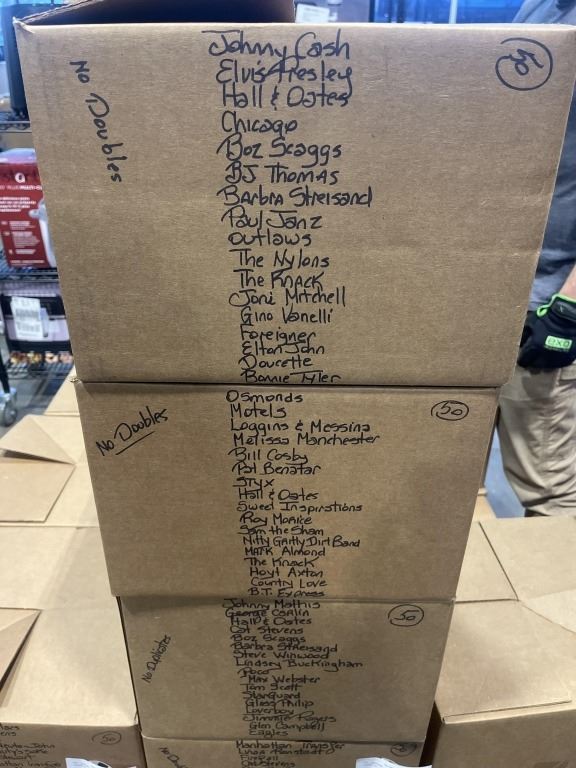 Johnny Cash
Elvis Presley
Hall & Oates
Chicago
Boz Scaggs
BJ Thomas
Barbra Streisand
Paul Janz
Outlaws
The Nylons
The Knack
Joni Mitchell
Gino Vanelli
Foreigner
Elton John
Doucette
Bonnie Tyler
No Doubles
50
Osmonds
Motels
Loggins & Messina
Melissa Manchester
Bill Cosby
Pat Benatar
Styx
Hall & Oates
Sweet Inspirations
Roy
Sam the Sham
Nitty Gritty Dirt Band
Mark Almond
The Knack
Hoyt Axton
Country Love
B.T. Express
No Doubles
50
Johnny Mathis
George Carlin
Hall & Oates
Cat Stevens
Boz Scaggs
Barbra Streisand
Steve Winwood
Lindsey Buckingham
Poco
Max Webster
Tom Scott
Starguard
Glass Philip
Loverboy
Jimmie Rogers
Glen Campbell
Eagles
No Duplicates
50
Manhattan Transfer
Linda Ronstadt
Firefall
Cat Stevens
50
exo